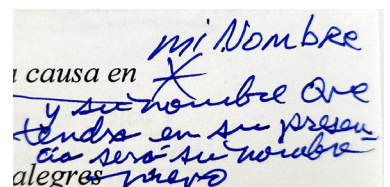 mi Nombre
a causa en X
y su nombre que
tendra en su presen
cia sera su nombre
alegres nuevo